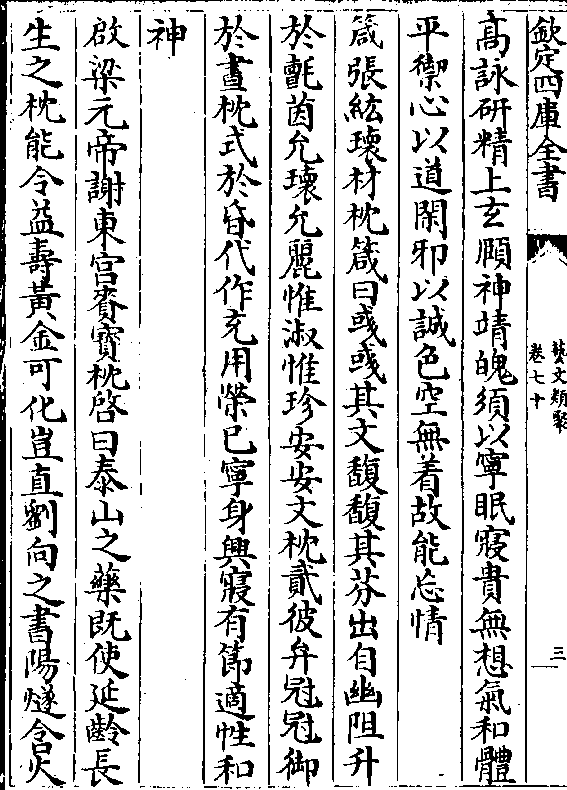 欽定四庫全書
藝文類聚
卷七十
三
高詠研精上玄頤神靖魄須以寧眠寢貴無想氣和體
平禦心以道閑邪以誠色空無着故能忘情
箴張紘瓌材枕箴曰彧彧其文馥馥其芬出自幽阻升
於氊茵允瓌允麗惟淑惟珍安安文枕貳彼弁冠冠御
於晝枕式於昏代作充用榮已寧身興寢有節適性和
神
啟梁元帝謝東宮賚寶枕啓曰泰山之藥既使延齡長
生之枕能令益壽黃金可化豈直劉向之書陽燧含火